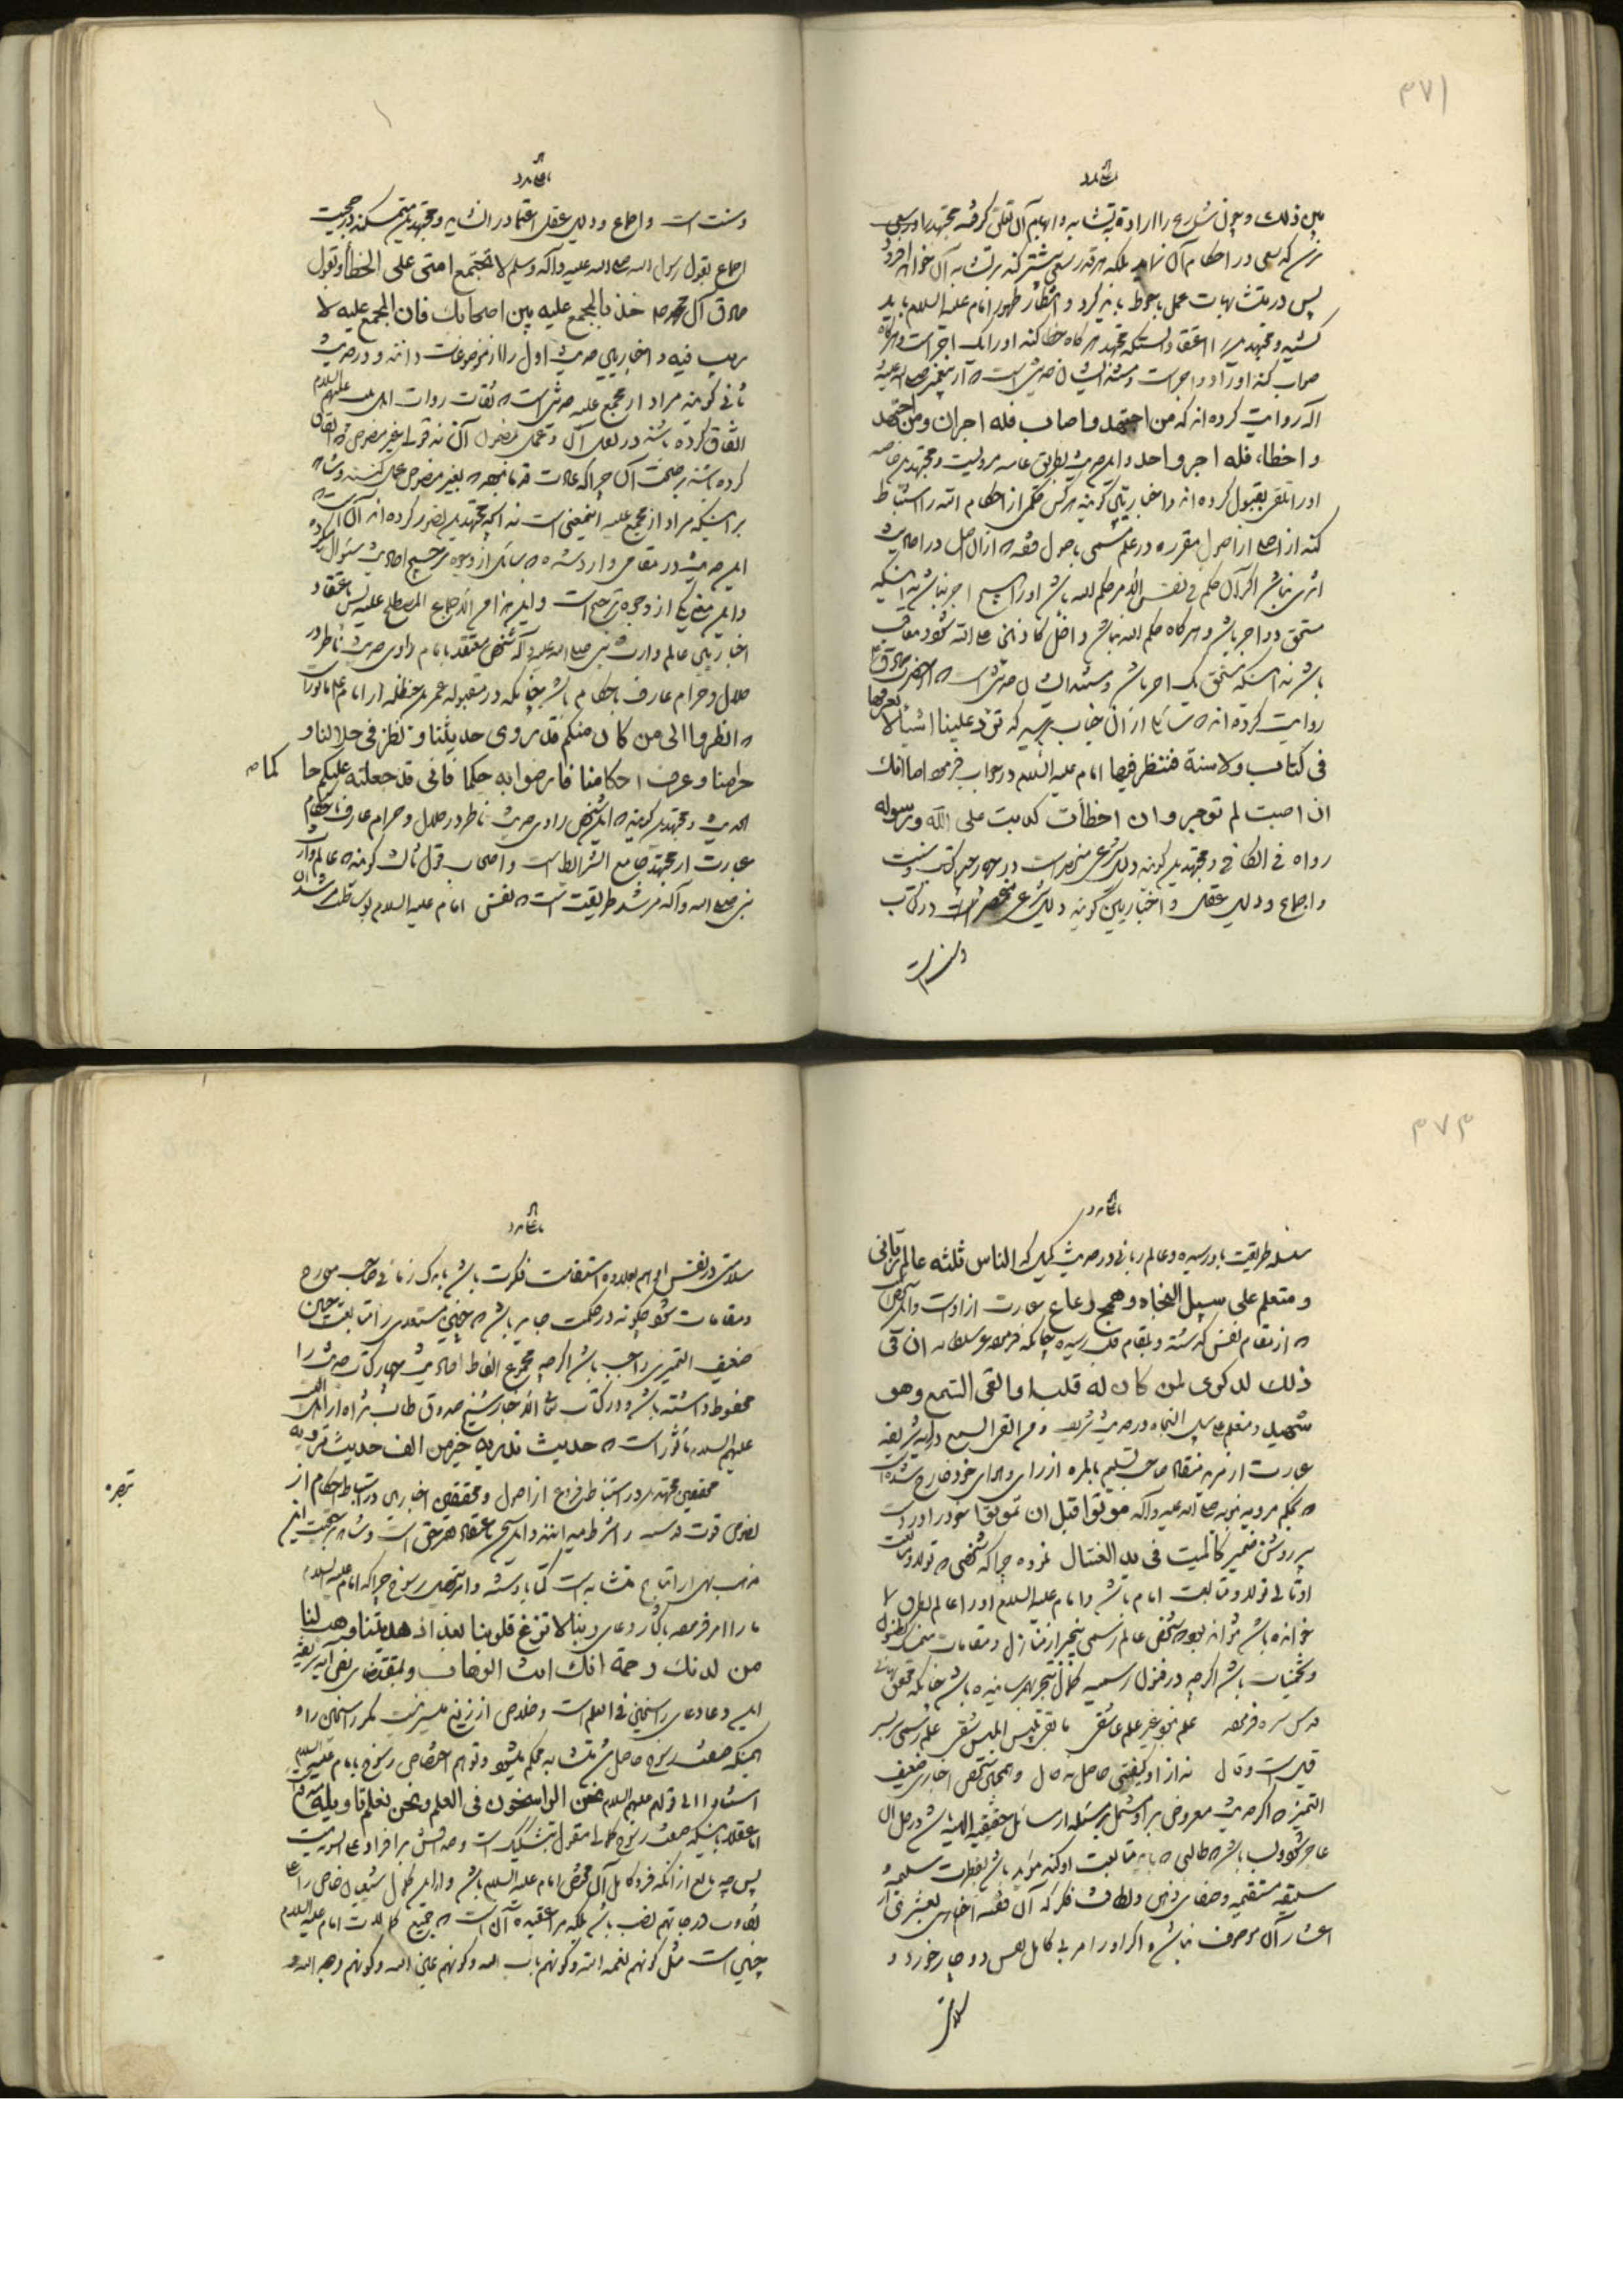 ۳۷۱
بین ذلك و چون شارع را اراده تشابه و ابهام آن تعلق گرفته مجتهد را در سعی
پس در متشابهات عمل باحوط باید کرد و انتظار ظهور امام علیه السلام باید
کشید و مجتهدین را اعتقاد اینستکه مجتهد هرگاه خطا کند او را یک اجر است و هرگاه
صواب کند او را دو اجر است و مستند ایشان حدیثی است که از پیغمبر صلی الله علیه
و آله روایت کرده اند که من اجتهد و اصاب فله اجران و من اجتهد
و اخطاء فله اجر واحد و این حدیث بطریق عامه مرویست و مجتهدین خاصه
او را تلقی بقبول کرده اند و اخباریین گویند هر کس حکمی از احکام الله را استنباط
کند از اصلی از اصول مقرره در علم مسمی باصول فقه که از آن اصل در احادیث
اثری نباشد اگر آن حکم فی نفس الامر حکم الله باشد او را هیچ اجر نباشد نه اینکه
مستحق دو اجر باشد و هرگاه حکم الله نباشد داخل کاذبی علی الله شود و معاقب
باشد نه اینکه مستحق یک اجر باشد و مستند ایشان حدیثی است که از حضرت صادق ع
روایت کرده اند که سائلی از آن جناب پرسید که ترد علینا اشیاء لا نعرفها
فی کتاب ولا سنة فننظر فیها امام علیه السلام در جواب فرمود اما انك
ان اصبت لم توجر و ان اخطأت کذبت علی الله و رسوله
رواه فی الکافی و مجتهدین گویند دلیل شرعی منحصر است در چهار چیز کتاب و سنت
و اجماع و دلیل عقل و اخباریین گویند دلیل شرعی منحصر است در کتاب
و سنت
و سنت است و اجماع و دلیل عقل را اعتماد را نشاید و مجتهدین متمسکند در حجیت
اجماع بقول رسول الله صلی الله علیه و آله و سلم لا تجتمع امتی علی الخطأ و بقول
صادق آل محمد ص خذ بالمجمع علیه بین اصحابك فان المجمع علیه لا
ریب فیه و اخباریین حدیث اول را از موضوعات دانند و در حدیث
ثانی گویند مراد از مجمع علیه حدیثی است که ثقات روات اهل بیت علیهم السلام
اتفاق کرده باشند در نقل آن و عمل بمضمون آن نه قول غیر منصوص که اتفاق
کرده باشند بر صحت آن چرا که عادت قدما نبوده که بغیر منصوص عمل کنند و شاهد
بر اینکه مراد از مجمع علیه اینمعنی است نه آنچه مجتهدین تصور کرده اند آنست که
این حدیث در مقامی وارد شده که سائل از وجوه ترجیح احادیث سئوال کرده
و این معنی یکی از وجوه ترجیح است و این هذا من الاجماع المصطلح علیه پس باعتقاد
اخباریین عالم وارث نبی صلی الله علیه و آله شخصی معتقد بامام و راوی حدیث ناظر در
حلال و حرام عارف باحکام باشد چنانکه در مقبوله عمر بن حنظله از امام علیه ماثور است
که انظروا الی من کان منکم قد روی حدیثنا و نظر فی حلالنا و
حرامنا و عرف احکامنا فارضوا به حکما فانی قد جعلته علیکم حاکما ص
الحدیث و مجتهدین گویند که این شخص راوی حدیث ناظر در حلال و حرام عارف باحکام
عبارت از مجتهد جامع الشرائط است و اصحاب قول ثالث گویند که عالم وارث
نبی صلی الله و آله مرشد طریقت است که بنفس امام علیه السلام بوساطت مرشدان
۳۷۳
سلسله طریقت باو رسیده و عالم ربانی در حدیث کمیل که الناس ثلثة عالم ربانی
و متعلم علی سبیل النجاة و همج رعاع عبارت از اوست و این شخص
که از مقام نفس گذشته و بمقام قلب رسیده چنانکه فرموده عز سلطانه ان فی
ذلك لذکری لمن کان له قلب او القی السمع و هو
شهید و متعلم علی سبیل النجاة در حدیث شریف و من القی السمع در آیه شریفه
عبارت از مرید منقاد صاحب تسلیم بالمره از رای و هوای خود خارج شده است
که بحکم مرویه نبویه صلی الله علیه و آله موتوا قبل ان تموتوا خود را در دست
پیر روشن ضمیر کالمیت فی ید الغسال نموده چرا که شخصی که تولد و متابعت
او ثانی تولد و متابعت امام باشد و امام علیه السلام او را عالم
خوانده باشد نتواند بود شخصی عالم رسمی بیخبر از منازل و مقامات
و تخمینات باشد اگرچه در فنون رسمیه کمال تبحر بهمرسانیده باشد چنانکه محقق بهائی
قدس سره فرموده علم نبود غیر علم عاشقی ما بقی تلبیس ابلیس شقی علم رسمی سر بسر
قیل است و قال نه از او کیفیتی حاصل نه حال و همچنین شخص اخباری ضعیف
التمیز که اگر حدیث معروض بر او مشتمل بر مسئله از مسائل حقیقیه الهیه باشد در حل آن
عاجز شود و لب باشد که طالبی که باید متابعت او کند مؤید باشد بفطرت سلیمه و
سلیقه مستقیمه و صفای ذهن و لطافت فکر که آن فقیه اخباری بعشری از
اعشار آن موصوف نباشد
سلامتی
سلامتی در نفس
و مقامات شود چگونه در حکمت جایز باشد که چنین مستعدی را متابعت چنین
ضعیف التمیزی واجب باشد اگرچه مجموع الفاظ احادیث چهار کتاب حدیث را
محفوظ داشته باشد و در کتاب معانی الاخبار شیخ صدوق طاب ثراه از اهل البیت
علیهم السلام ماثور است که حدیث تدریه خیر من الف حدیث ترویه
تبصره
محققین مجتهدین در استنباط فروع از اصول و محققین اخباریین در استنباط احکام از
نصوص قوت قدسیه را شرط میدانند و این سخن باعتقاد فقیر حق است و شاهد بر حقیت این
مذهب نهی از اتباع متشابه است کتابا و سنة و امر بتحصیل رسوخ چرا که امام علیه السلام
ما را امر فرموده بتکرار دعای ربنا لا تزغ قلوبنا بعد اذ هدیتنا و هب لنا
من لدنك رحمة انك انت الوهاب و بمقتضای نص آیه شریفه
این دعا دعای راسخین فی العلم است و خلاص از زیغ میسر نیست مگر راسخان را و
اینکه صفت رسوخ حاصل شد متشابه محکم میشود و توهم اختصاص رسوخ بامام علیه السلام
استنادا الی قولهم علیهم السلام نحن الراسخون فی العلم و نحن نعلم تاویله مدفوع
اما عقلا باینکه صفت رسوخ کلی مقول بتشکیک است و صدقش بر افراد علی السویه نیست
پس چه مانع از آنکه فرد کامل آن مختص امام علیه السلام باشد و از این کمال شیعیان خاص را علی
تفاوت درجاتهم نصیب باشد بلکه مرا عقیده آن است که جمیع کمالات امام علیه السلام
چنین است مثل کونهم نعمة الله و کونهم باب الله و کونهم عین الله و کونهم وجه الله و